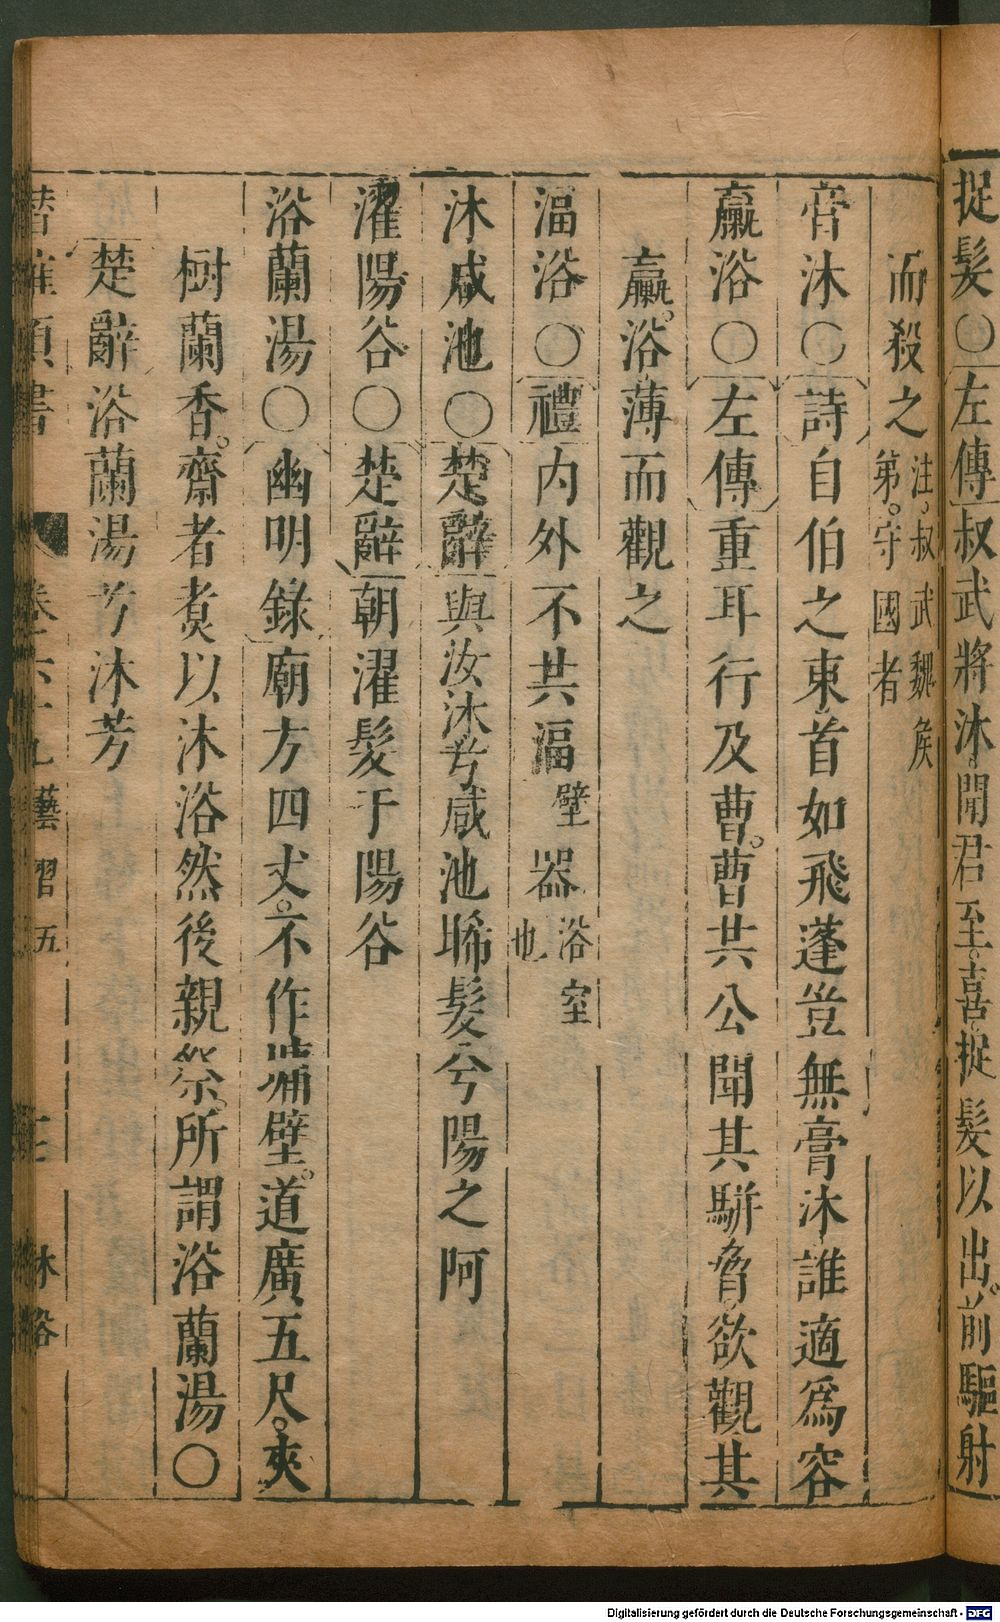 捉髮○左傳叔武將沐聞君至喜捉髮以出前驅射
而殺之注叔武魏侯弟守國者
膏沐○詩自伯之東首如飛蓬豈無膏沐誰適為容
臝浴○左傳重耳行及曹曹共公聞其駢脅欲觀其
臝浴薄而觀之
湢浴○禮內外不共湢壁器浴室也
沐咸池○楚辭與汝沐兮咸池晞髮兮陽之阿
濯陽谷○楚辭朝濯髮于陽谷
浴蘭湯○幽明錄廟方四丈不作墉壁道廣五尺夾
樹蘭香齋者煑以沐浴然後親祭所謂浴蘭湯○
楚辭浴蘭湯兮沐芳
潛確類書 卷六十九藝習五 沐浴
Digitalisierung gefördert durch die Deutsche Forschungsgemeinschaft - DFG